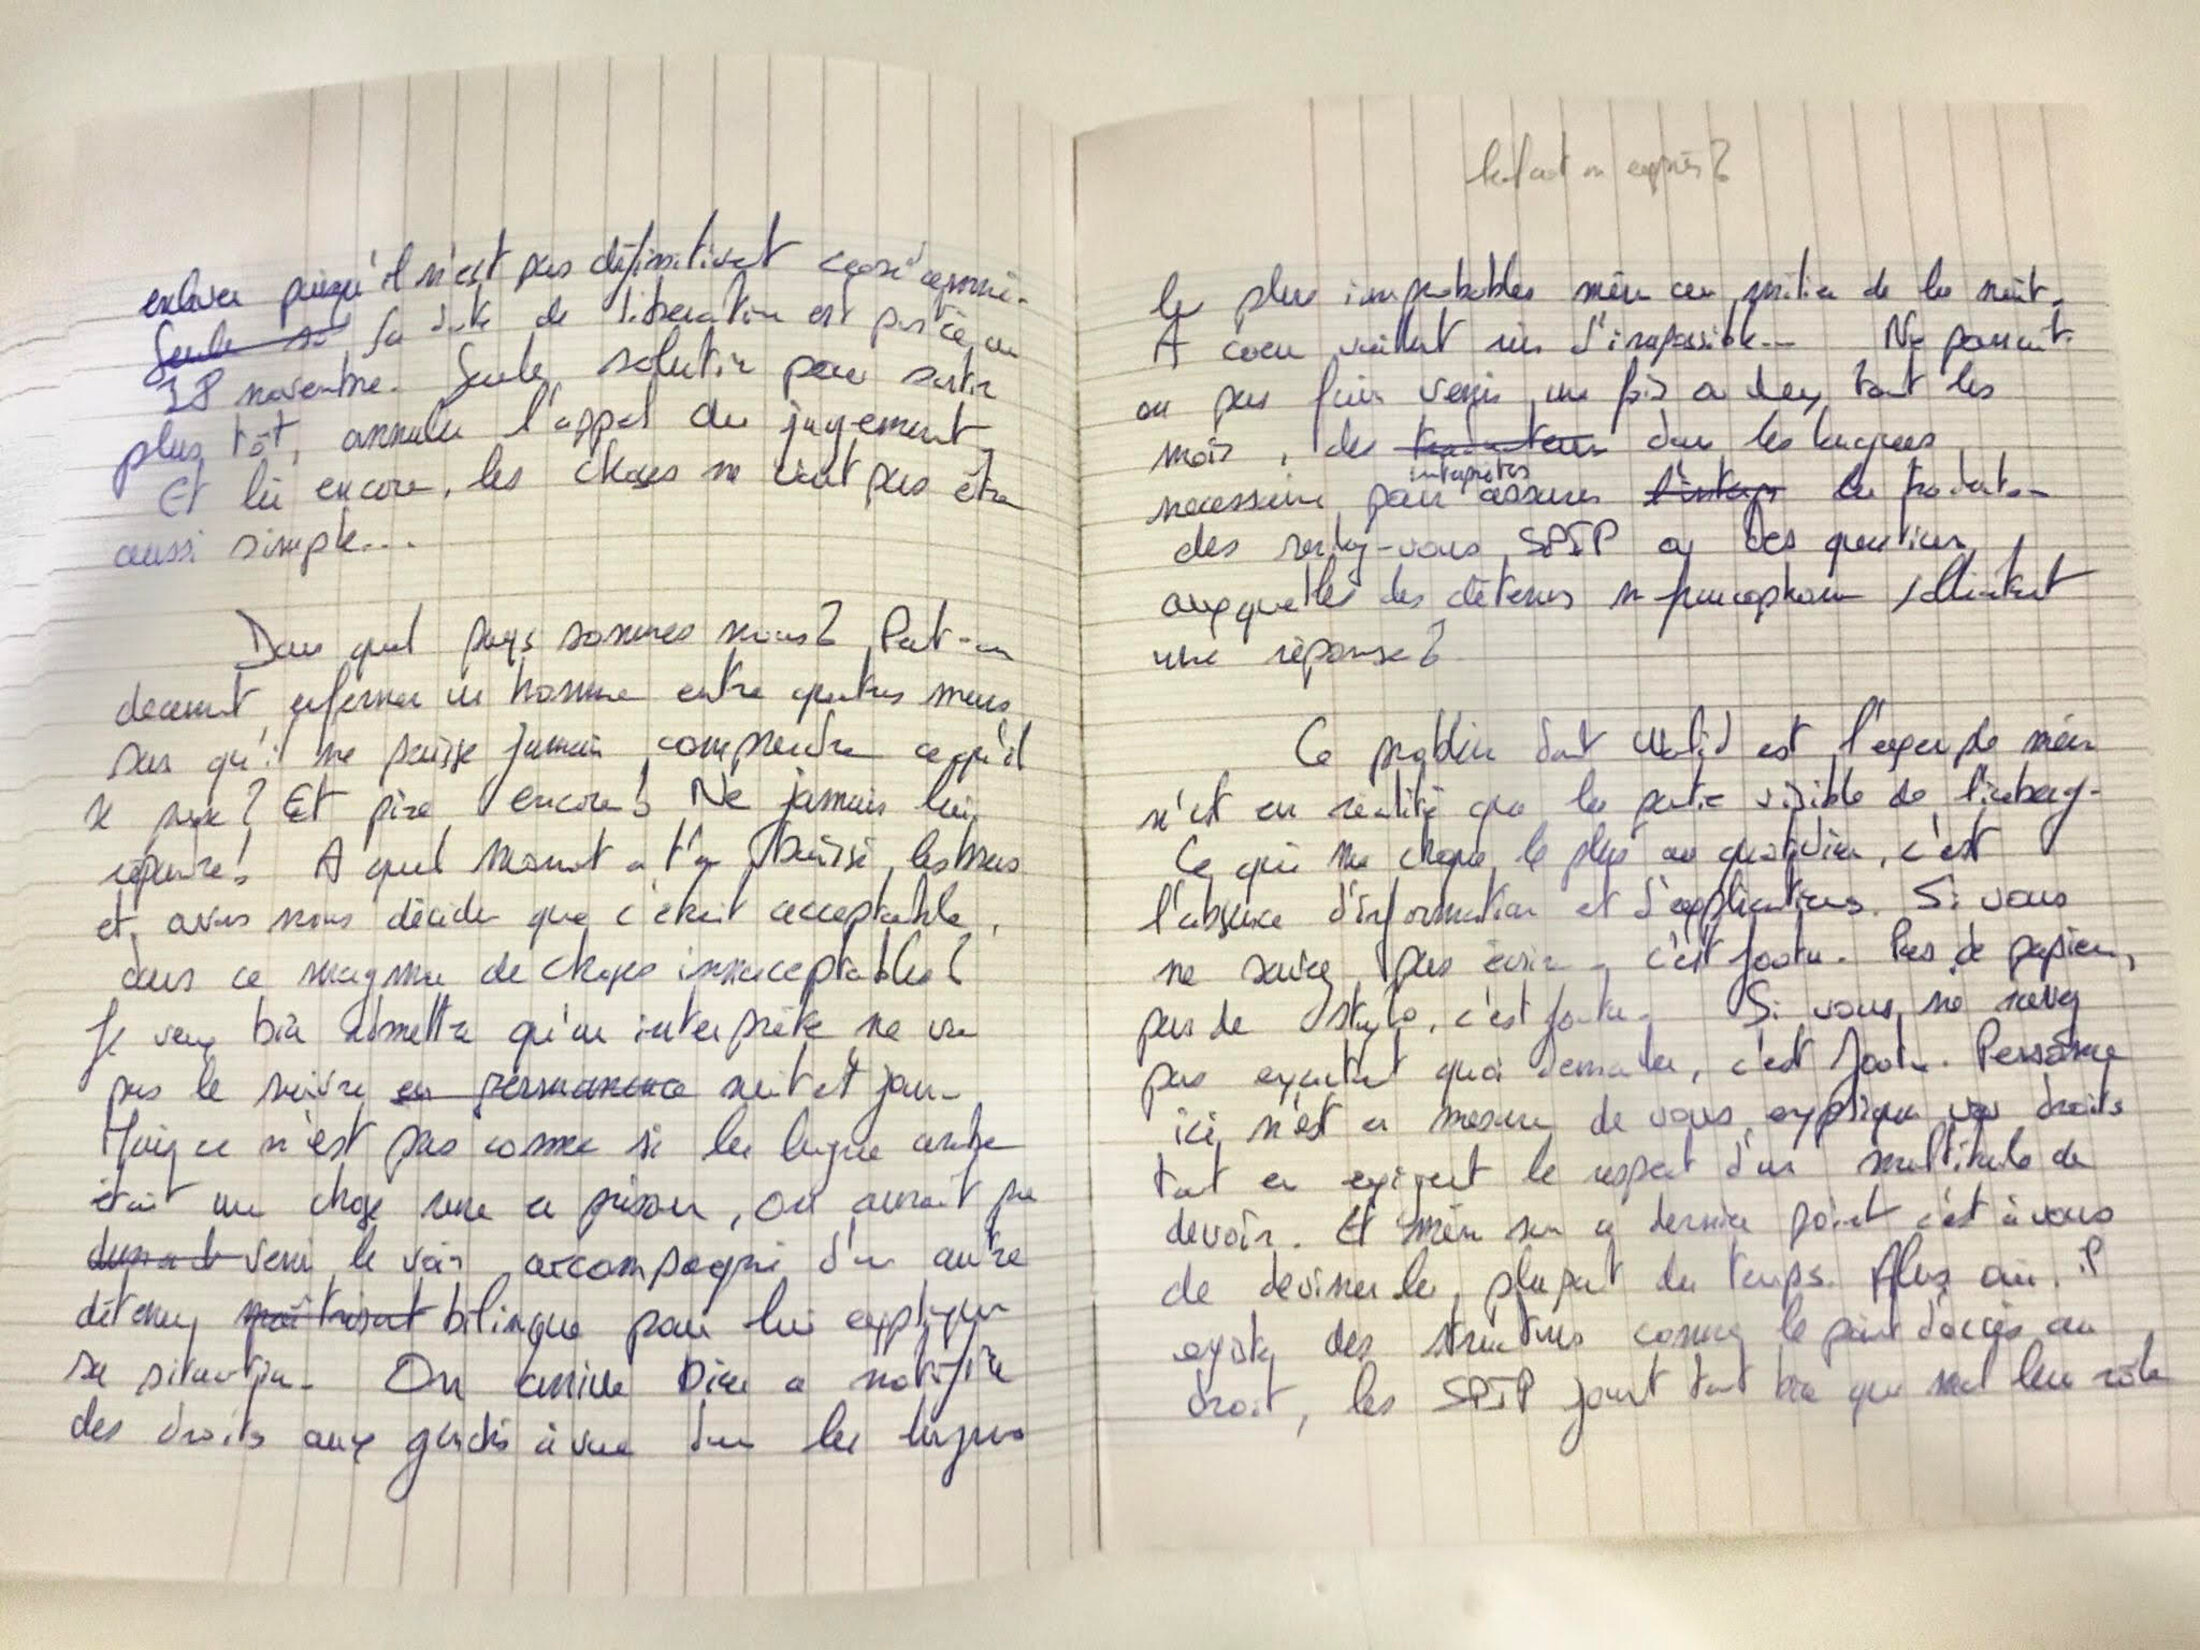 enlever puisqu'il n'est pas définitivement
Seule sa Sa date de libération est portée au
18 novembre. Seule solution pour sortir
plus tôt, annuler l'appel du jugement.
Et là encore, les choses ne vont pas être
aussi simple...
Dans quel pays sommes nous? Peut-on
décemment enfermer un homme entre quatres murs
sans qu'il ne puisse jamais comprendre ce qu'il
se passe? Et pire encore! Ne jamais lui
répondre! A quel moment a t'on baissé les bras
et avons nous décider que c'était acceptable,
dans ce magma de choses innacceptables?
Je veux bien admettre qu'un interprète ne va
pas le suivre en permanence nuit et jour.
Mais ce n'est pas comme si la langue arabe
était une chose rare en prison, on aurait pu
venir le voir accompagné d'un autre
détenu maîtrisant bilingue pour lui expliquer
sa situation. On arrive bien a notifier
des droits aux gardés à vue dans les langues
le fait on exprès?
les plus improbables même au milieu de la nuit.
A coeur vaillant rien d'impossible... Ne pourrait-
on pas faire venir une fois ou deux tout les
mois, des traducteurs dans les langues
interprètes
necessaire pour assurer la traduction
des rendez-vous SPIP ou des questions
auxquelles des détenus non francophones sollicitent
une réponse?
Ce problème dont Walid est l'exemple même
n'est en réalité que la partie visible de l'iceberg.
Ce qui me choque le plus au quotidien, c'est
l'absence d'information et d'explications. Si vous
ne savez pas écrire, c'est foutu. Pas de papier,
pas de stylo, c'est foutu. Si vous ne savez
pas exactement quoi demander, c'est foutu. Personne
ici n'est en mesure de vous expliquer vos droits
tout en exigeant le respect d'un multitude de
devoir. Et même sur ce dernier point c'est à vous
de deviner la plupart du temps. Alors oui, il
existe des structures comme le point d'accès au
droit, les SPIP jouent tant bien que mal leur rôle